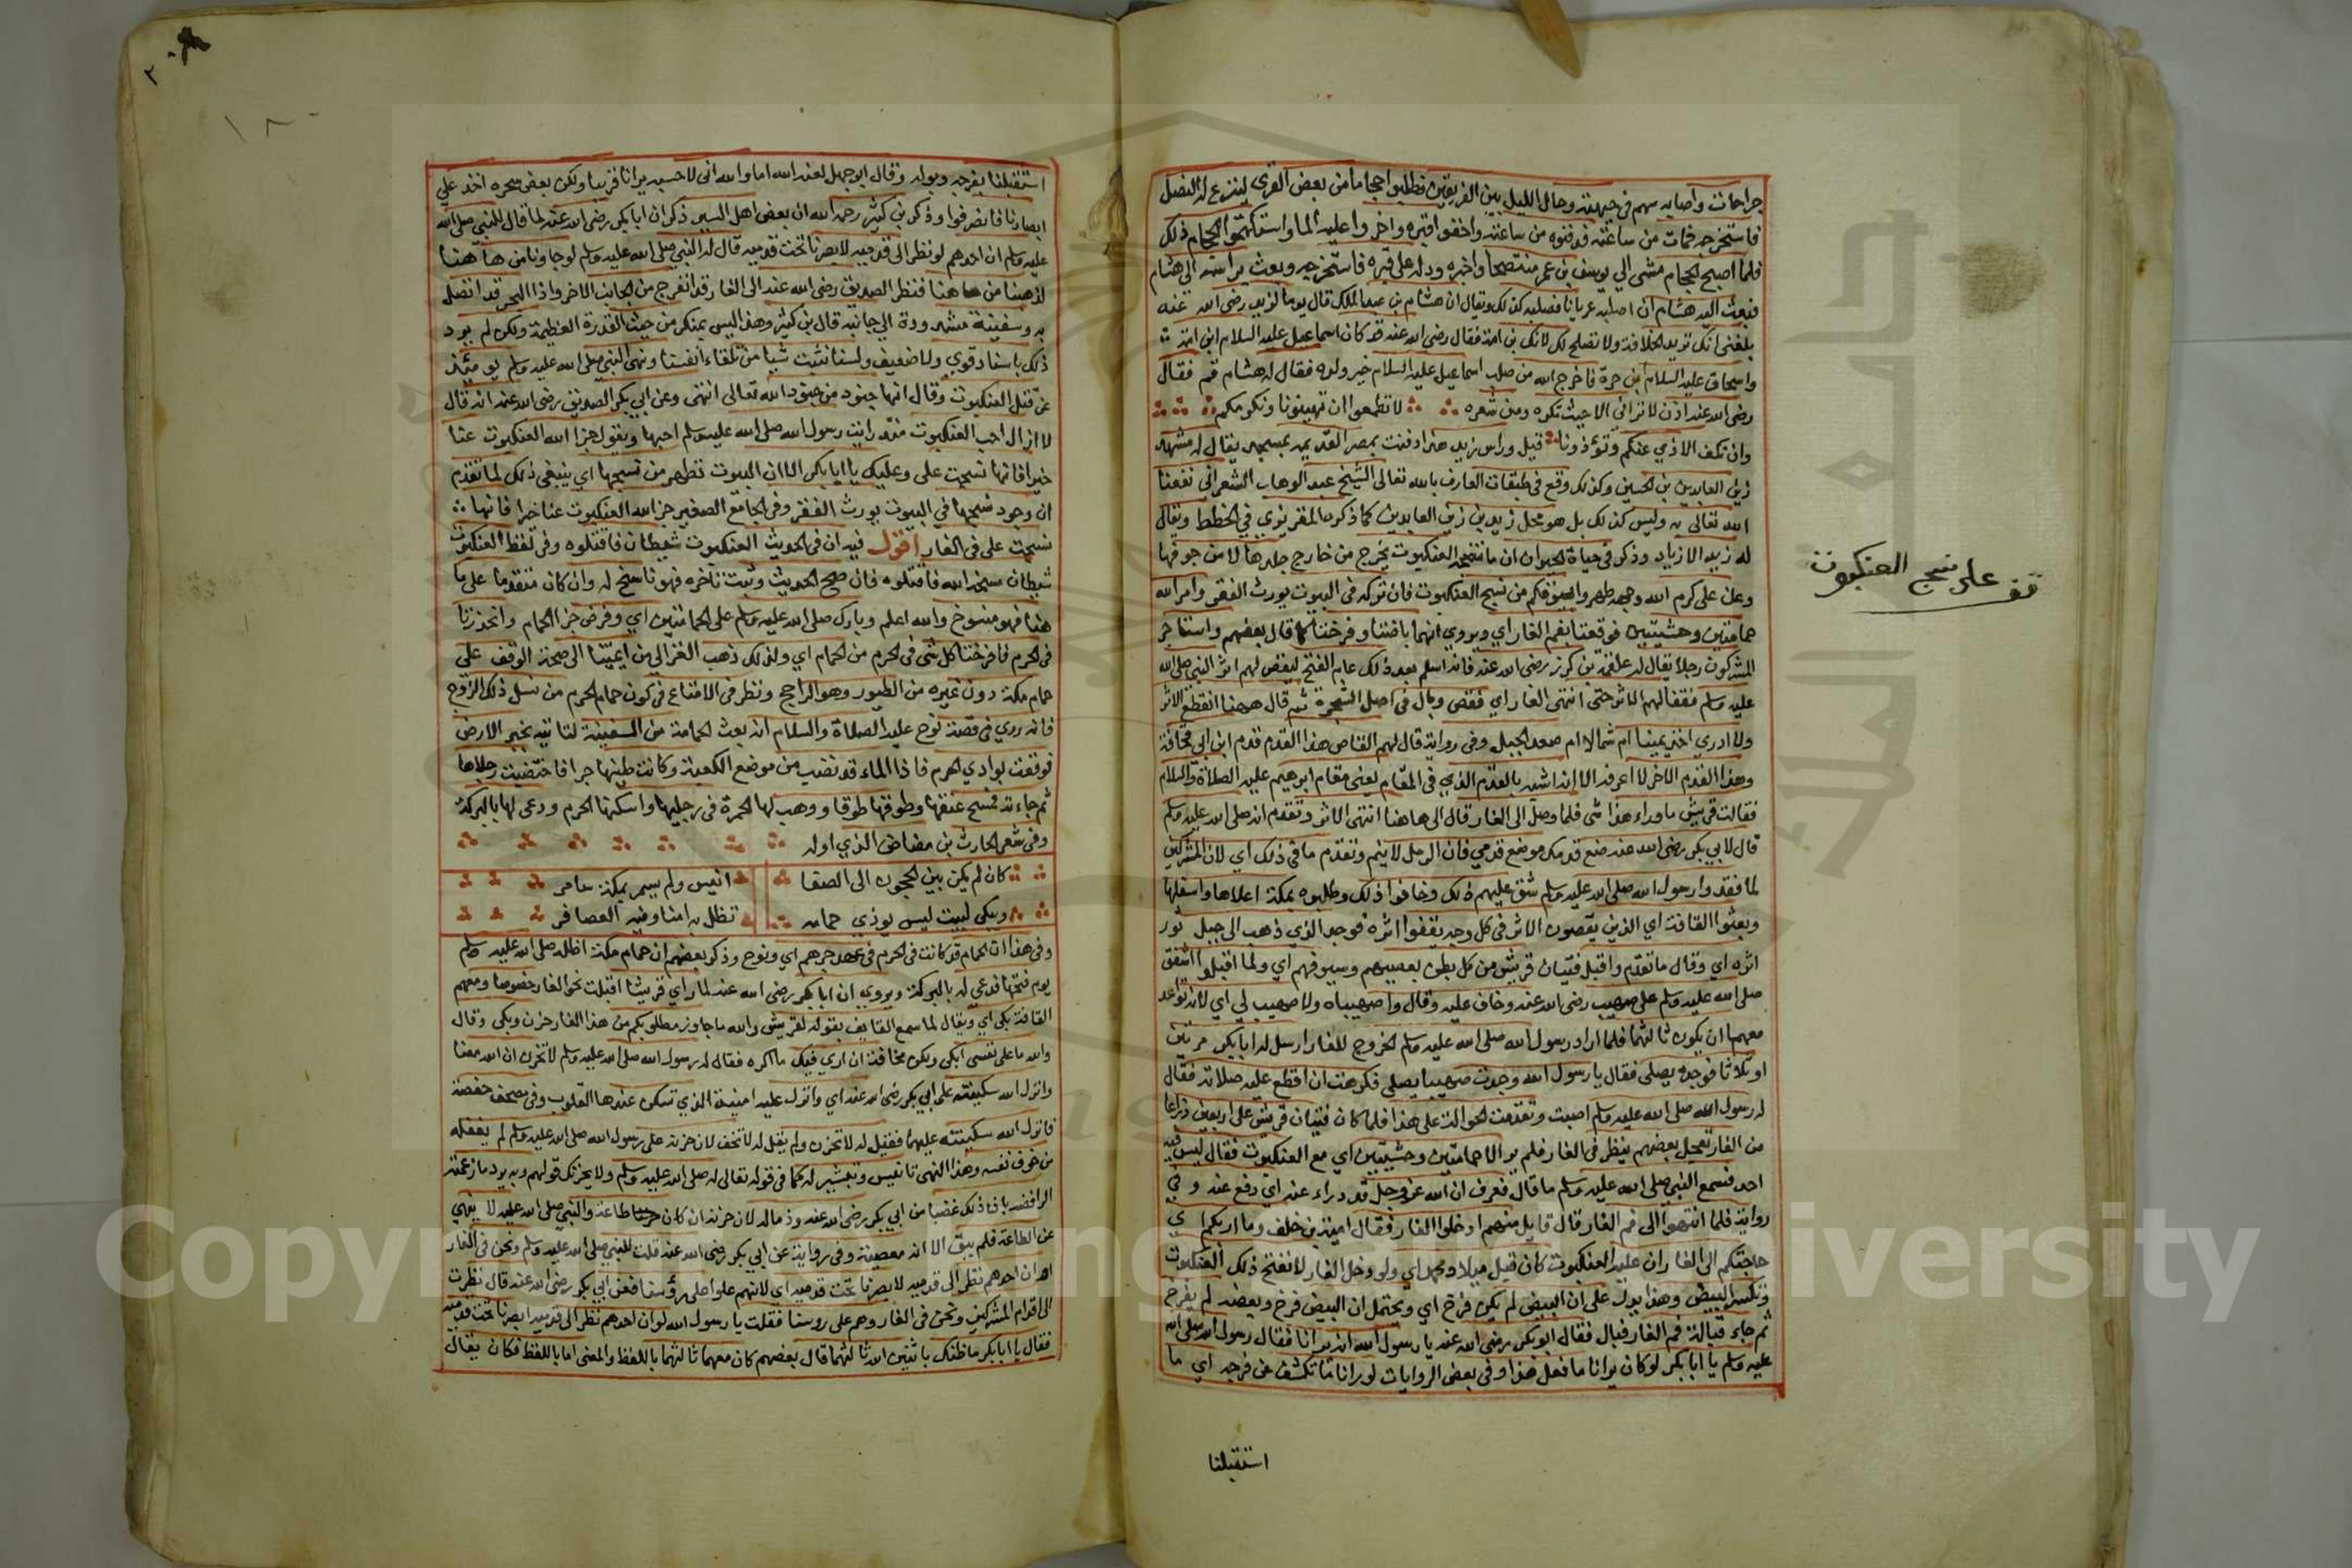 جراحات واصابه سهم في جبهته وحال الليل بين الفريقين فطلبوا حجاما من بعض القرى لينزع له النصل
فاستخرجه فمات من ساعته فدفنوه من ساعته واخفوا قبره واجروا عليه الما واستكتموا الحجام ذلك
فلما اصبح الحجام مشى الي يوسف بن عمر منتصحا واخبره ودله على قبره فاستخرجه وبعث براسه الى هشام
فبعث اليه هشام ان اصلبه عريانا فصلبه كذلك ويقال ان هشام بن عبد الملك قال يوما لزيد رضى الله عنه
بلغنى انك تريد الخلافة ولا تصلح لك لانك بن امة فقال رضى الله عنه قد كان اسماعيل عليه السلام ابن امة
واسحاق عليه السلام ابن حرة فاخرج الله من صلب اسماعيل عليه السلام خير ولده فقال له هشام قم فقال
رضى الله عنه اذن لا تراني الا حيث تكره ومن شعره لا تطمعوا ان تهينونا ونكرمكم
وان نكف الاذي عنكم وتؤذونا قيل وراس زيد هذا دفنت بمصر القديمة بمسجد يقال له مشهد
زين العابدين بن الحسين وكذلك وقع في طبقات العارف بالله تعالى الشيخ عبد الوهاب الشعراني نفعنا
الله تعالى به وليس كذلك بل هو محل زيد بن زين العابدين كما ذكره المقريزي في الخطط ويقال
له زيد الازياد وذكر في حياة الحيوان ان ما تنسجه العنكبوت يخرج من خارج جلدها لا من جوفها
وعن على كرم الله وجهه طهروا بيوتكم من نسج العنكبوت فان تركه في البيوت يورث الفقر وامر الله
حمامتين وحشيتين فوقعتا بفم الغار اي ويروي انهما باضتا وفرختا كما قال بعضهم واستاجر
المشركون رجلا يقال له علقمة بن كرز رضى الله عنه فانه اسلم بعد ذلك عام الفتح ليقص لهم اثر النبي صلى الله
عليه وسلم فقفا لهم الاثر حتى انتهى الغار اي فقص وبال في اصل الشجرة ثم قال ههنا انقطع الاثر
ولا ادري اخذ يمينا ام شمالا ام صعد الجبل وفى رواية قال لهم القاص هذا القدم قدم ابن ابي قحافة
وهذا القدم الاخر لا اعرفه الا انه اشبه بالقدم الذي في المقام يعنى مقام ابرهيم عليه الصلاة والسلام
فقالت قريش ما وراء هذا شى فلما وصل الى الغار قال الى هاهنا انتهى الاثر وتقدم انه صلى الله عليه وسلم
قال لابي بكر رضى الله عنه ضع قدمك موضع قدمي فان الرمل لا ينم وتقدم ما في ذلك اي لان المشركين
لما فقدوا رسول الله صلى الله عليه وسلم شق عليهم ذلك وخافوا ذلك وطلبوه بمكة اعلاها واسفلها
وبعثوا القافة اي الذين يقصون الاثر في كل وجه يقفوا اثره فوجد الذي ذهب الى جبل ثور
اثره اي وقال ما تقدم واقبل فتيان قريش من كل بطن بعصيهم وسيوفهم اي ولما اقبلوا اشفق
صلى الله عليه وسلم على صهيب رضى الله عنه وخاف عليه وقال واصهيباه ولا صهيب لي اي لانه تواعد
معهما ان يكون ثالثهما فلما اراد رسول الله صلى الله عليه وسلم الخروج للغار ارسل له ابا بكر مرتين
او ثلاثا فوجده يصلى فقال يا رسول الله وجدت صهيبا يصلى فكرهت ان اقطع عليه صلاته فقال
له رسول الله صلى الله عليه وسلم اصبت وتقدمت الحوالة على هذا فلما كان فتيان قريش على اربعين ذراعا
من الغار تعجل بعضهم ينظر في الغار فلم ير الا حمامتين وحشيتين اي مع العنكبوت فقال ليس فيه
احد فسمع النبي صلى الله عليه وسلم ما قال فعرف ان الله عز وجل قد دراء عنه اي دفع عنه وفي
رواية فلما انتهوا الى فم الغار قال قايل منهم ادخلوا الغار فقال امية بن خلف وما اربكم اي
حاجتكم الى الغار ان عليه العنكبوت كان قبل ميلاد محمد اي ولو دخل الغار لانفتح ذلك العنكبوت
وتكسر البيض وهذا يدل على ان البيض لم يكن فرخ اي ويحتمل ان البيض فرخ وبعضه لم يفرخ
ثم جاء قبالة فم الغار فبال فقال ابو بكر رضى الله عنه يا رسول الله انه يرانا فقال رسول الله صلى الله
عليه وسلم يا ابا بكر لو كان يرانا ما فعل هذا وفي بعض الروايات لو رانا ما تكشف عن فرجه اي ما
استقبلنا
قف على نسج العنكبوت
استقبلنا بفرجه وبوله وقال ابو جهل لعنه الله اما والله اني لاحسبه يرانا قريبا ولكن بعض سحره اخذ علي
ابصارنا فانصرفوا وذكر بن كثير رحمه الله ان بعض اهل السير ذكر ان ابا بكر رضى الله عنه لما قال للنبي صلى الله
عليه وسلم ان احدهم لو نظر الى قدميه لابصرنا تحت قدميه قال له النبي صلى الله عليه وسلم لو جاونا من ها هنا
لذهبنا من ها هنا فنظر الصديق رضى الله عنه الى الغار قد انفرج من الجانب الاخر واذا البحر قد اتصل
به وسفينة مشدودة الي جانبه قال بن كثير وهذا ليس بمنكر من حيث القدرة العظيمة ولكن لم يرد
ذلك باسناد قوي ولا ضعيف ولسنا نثبت شيا من تلقاء انفسنا ونهى النبي صلى الله عليه وسلم يومئذ
عن قتل العنكبوت وقال انها جنود من جنود الله تعالى انتهى وعن ابي بكر الصديق رضى الله عنه انه قال
لا ازال احب العنكبوت منذ رايت رسول الله صلى الله عليه وسلم احبها ويقول جزا الله العنكبوت عنا
خيرا فانها نسجت على وعليك يا ابا بكر الا ان البيوت تطهر من نسجها اي ينبغى ذلك لما تقدم
ان وجود نسجها في البيوت يورث الفقر وفي الجامع الصغير جزا الله العنكبوت عنا خيرا فانها
نسجت على في الغار اقول فيه ان في الحديث العنكبوت شيطان فاقتلوه وفي لفظ العنكبوت
شيطان مسخه الله فاقتلوه فان صح الحديث وثبت تاخره فهو ناسخ له وان كان متقدما على ما
هنا فهو منسوخ والله اعلم وبارك صلى الله عليه وسلم على الحمامتين اي وفرض جزا الحمام وانحدرتا
في الحرم فافرختا كل شى في الحرم من الحمام اي ولذلك ذهب الغزالي من ايمتنا الى صحة الوقف علي
حمام مكة دون غيره من الطيور وهو الراجح ونظر في الامتاع في كون حمام الحرم من نسل ذلك الزوج
فانه روي في قصة نوح عليه الصلاة والسلام انه بعث الحمامة من السفينة لتاتيه بخبر الارض
فوقعت بوادي الحرم فاذا الماء قد نضب من موضع الكعبة وكانت طينها حمرا فاختضبت رجلاها
ثم جاءته فمسح عنقها وطوقها طوقا ووهب لها الحمرة في رجليها واسكنها الحرم ودعى لها بالبركة
وفي شعر الحارث بن مضاض الذي اوله
كان لم يكن بين الحجون الى الصفا انيس ولم يسمر بمكة سامر
ويبكى لبيت ليس يوذي حمامه تظل به امنا وفيه العصافر
وفي هذا ان الحمام قد كانت في الحرم في عهد جرهم اي ونوح وذكر بعضهم ان حمام مكة اظله صلى الله عليه وسلم
يوم فتحها فدعي له بالبركة ويروي ان ابا بكر رضى الله عنه لما راي قريشا اقبلت نحو الغار خصوصا ومعهم
القافة بكى اي ويقال لما سمع القايف بقوله لقريش والله ما جاوز مطلوبكم من هذا الغار حزن وبكى وقال
والله ما على نفسى ابكى ولكن مخافة ان اري فيك ما اكره فقال له رسول الله صلى الله عليه وسلم لا تحزن ان الله معنا
وانزل الله سكينته على ابي بكر رضى الله عنه اي وانزل عليه امنيته الذي تسكن عندها القلوب وفي مصحف حفصة
فانزل الله سكينته عليهما فقيل له لا تحزن ولم يقل له لا تخف لان حزنه على رسول الله صلى الله عليه وسلم لم يغفله
من خوف نفسه وهذا النهى تانيس وتبشير له كما في قوله تعالى له صلى الله عليه وسلم ولا يحزنك قولهم وبه يرد ما زعمته
الرافضة بان ذلك غضبا من ابي بكر رضى الله عنه وذما له لان حزنه ان كان طاعة والنبي صلى الله عليه لا ينهى
عن الطاعة فلم يبق الا انه معصية وفي رواية عن ابي بكر رضى الله عنه قلت للنبي صلى الله عليه وسلم ونحن في الغار
لو ان احدهم نظر الى قدميه لابصرنا تحت قدميه اي لانهم علوا على رؤسنا فعن ابي بكر رضى الله عنه قال نظرت
الى اقدام المشركين ونحن في الغار وهم على روسنا فقلت يا رسول الله لو ان احدهم نظر الى قدميه ابصرنا تحت قدميه
فقال يا ابا بكر ما ظنك باثنين الله ثالثهما قال بعضهم كان معهما ثالثهما باللفظ والمعنى اما باللفظ فكان يقال
Copyright © King Saud University